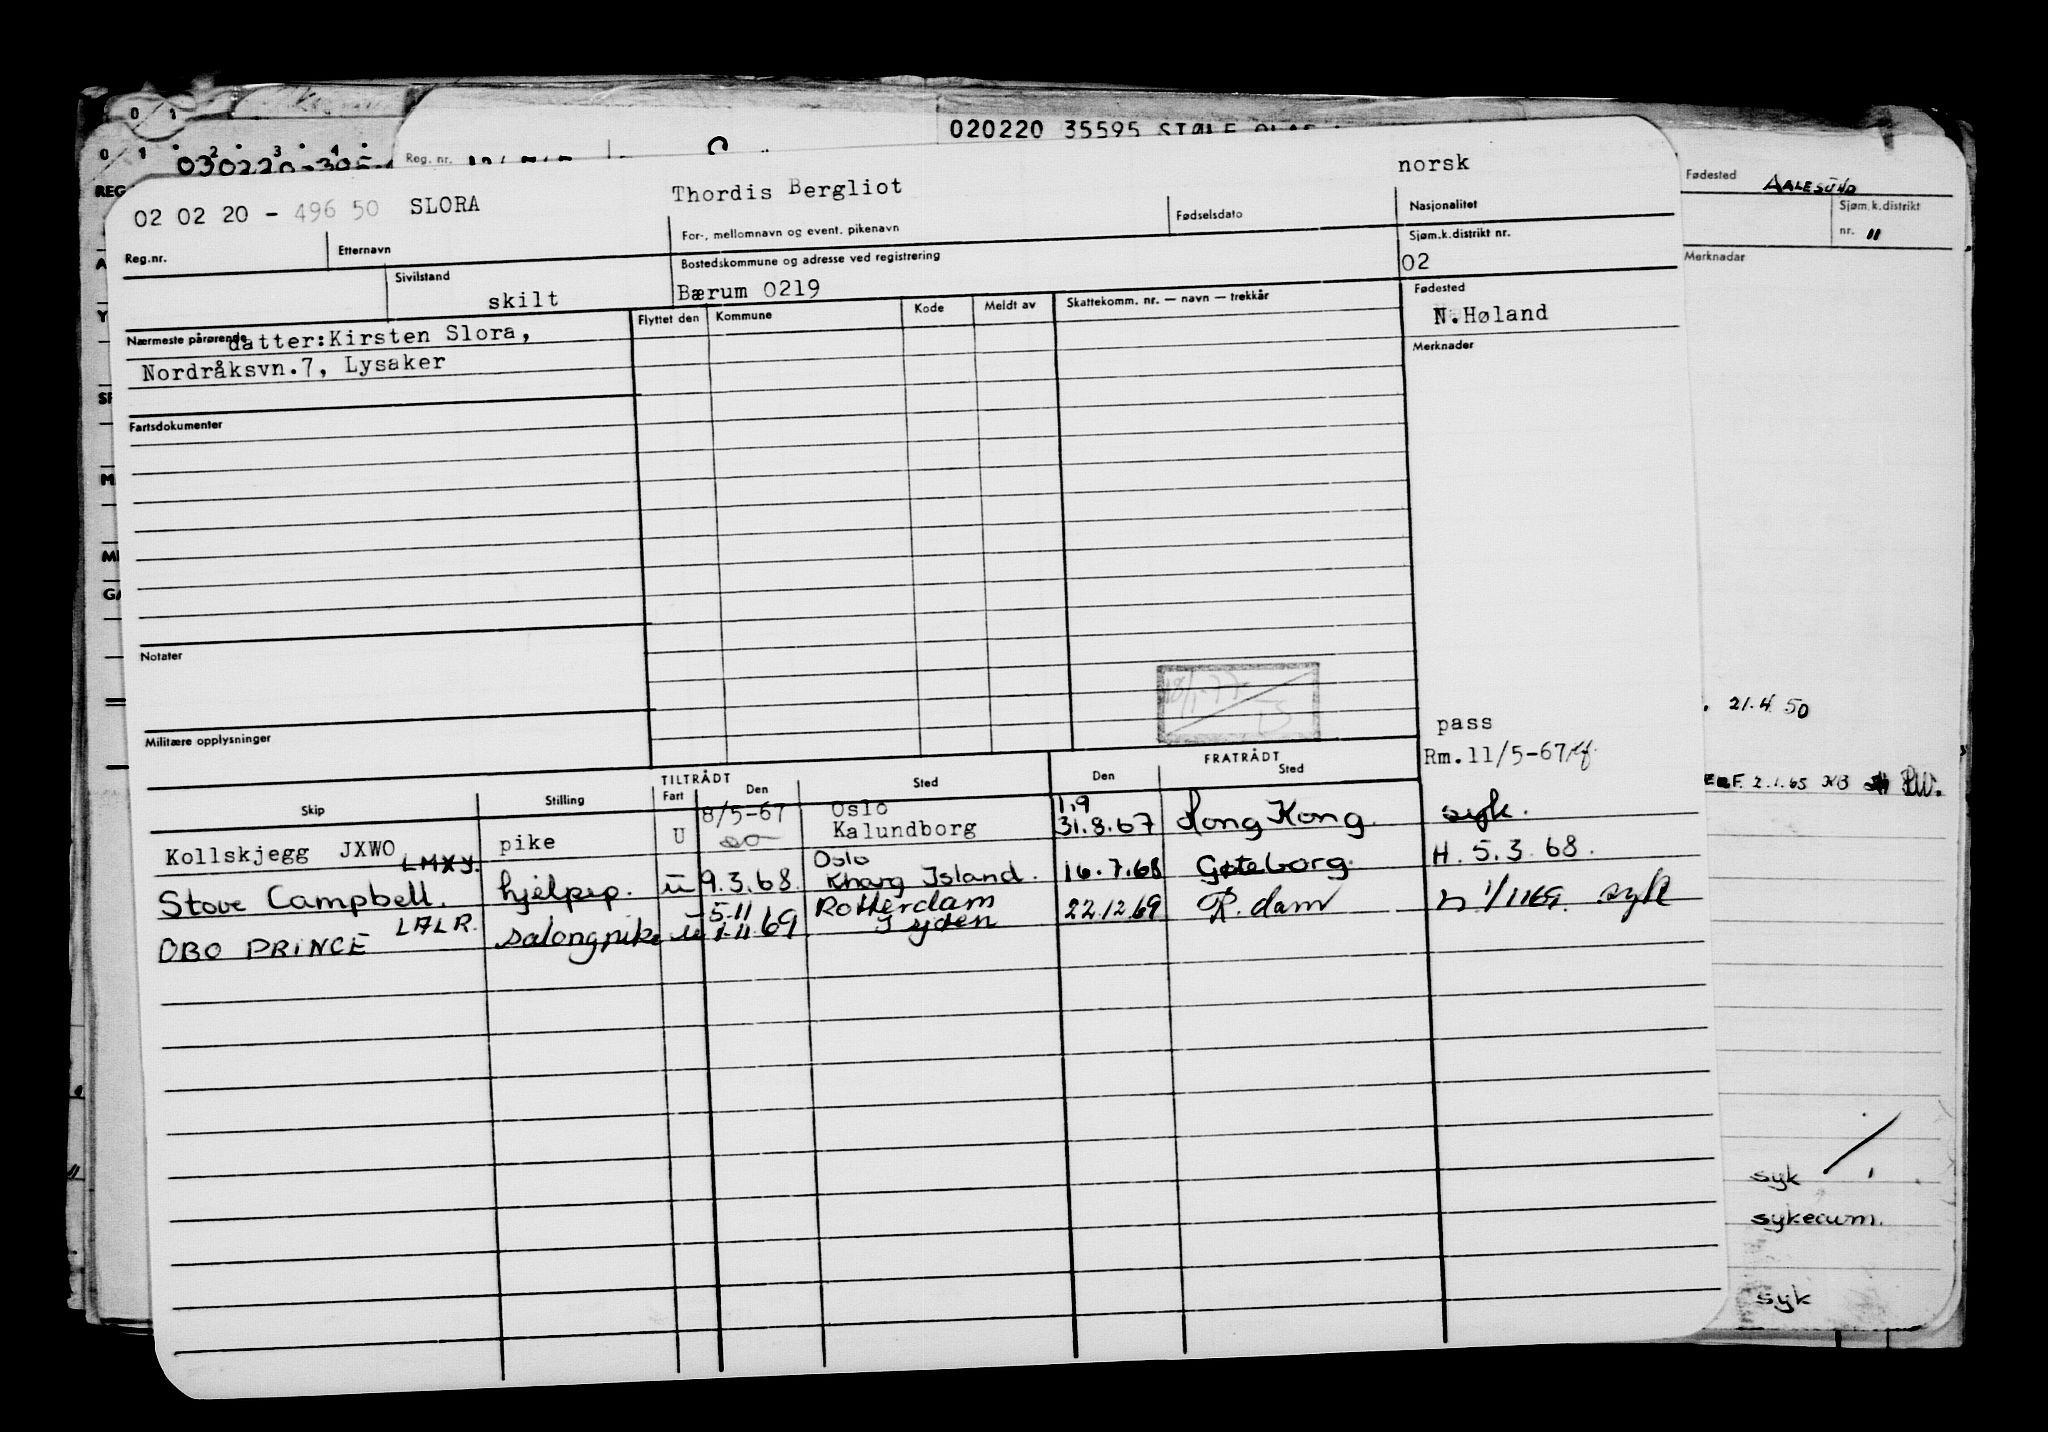 020220 35595
Reg. nr.
Fødested AALESUND
Sjøm.k.distrikt
nr. 11
Merknadar
02 02 20 - 496 50 SLORA Thordis Bergliot norsk
Reg.nr. Etternavn For-, mellomnavn og event. pikenavn Fødselsdato Nasjonalitet
Sivilstand Bostedskommune og adresse ved registrering Sjøm.k.distrikt nr.
skilt Bærum 0219 02
Nærmeste pårørende Flyttet den Kommune Kode Meldt av Skattekomm. nr. — navn — trekkår Fødested
datter:Kirsten Slora, N.Høland
Nordråksvn.7, Lysaker Merknader
Fartsdokumenter
Notater
Militære opplysninger
pass
Rm.11/5-67
TILTRÅDT FRATRÅDT
Skip Stilling Fart Den Sted Den Sted
8/5-67 Oslo 1.9
Kollskjegg JXWO pike U Kalundborg 31.8.67 Hong Kong. syk.
LMXY. Oslo
Stove Campbell. hjelpep. u 9.3.68. Kharg Island. 16.7.68 Gøteborg. H. 5.3.68.
LALR. 5.11 Rotterdam
OBO PRINCE salongpike u 1.11.69 22.12.69 R.dam syk
21.4.50
2.1.65
syk
sykecum.
syk